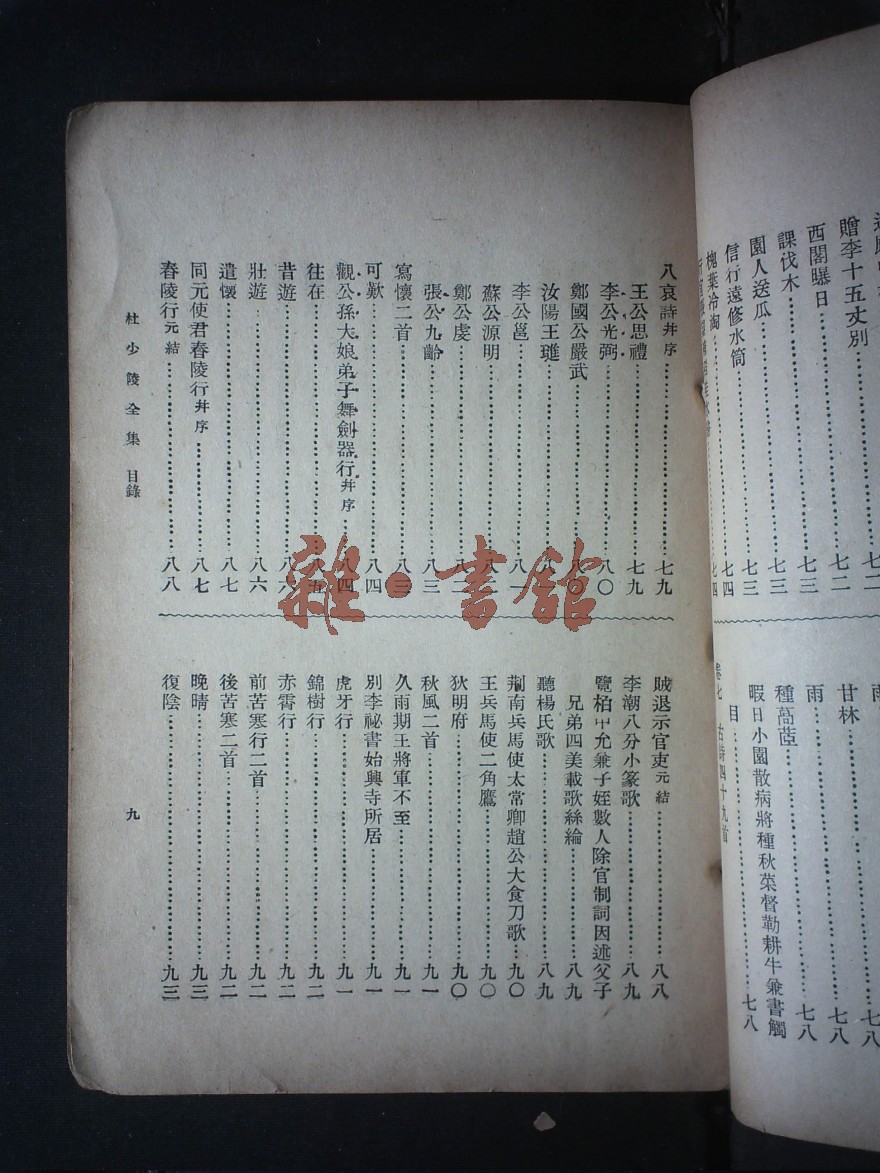 贈李十五丈別……七二
西閣曝日……七二
課伐木……七三
園人送瓜……七三
信行遠修水筒……七三
槐葉冷淘……七四
七四
雨
甘林……七八
雨……七八
種萵苣……七八
暇日小園散病將種秋菜督勒耕牛兼書觸
目……七八
卷七 古詩四十九首
八哀詩并序……七九
王公思禮……七九
李公光弼……八〇
鄭國公嚴武……八〇
汝陽王璡……八
李公邕……八一
蘇公源明……八二
鄭公虔……八二
張公九齡……八三
寫懷二首……八三
可歎……八四
觀公孫大娘弟子舞劍器行并序……八四
往在……八五
昔遊……八六
壯遊……八六
遣懷……八七
同元使君舂陵行并序……八七
舂陵行元結……八八
賊退示官吏元結……八八
李潮八分小篆歌……八九
覽柏中允兼子姪數人除官制詞因述父子
兄弟四美載歌絲綸……八九
聽楊氏歌……八九
荊南兵馬使太常卿趙公大食刀歌……九〇
王兵馬使二角鷹……九〇
狄明府……九〇
秋風二首……九一
久雨期王將軍不至……九一
別李祕書始興寺所居……九一
虎牙行……九一
錦樹行……九二
赤霄行……九二
前苦寒行二首……九二
後苦寒二首……九二
晚晴……九三
復陰……九三
杜少陵全集 目錄
九
雜·書館